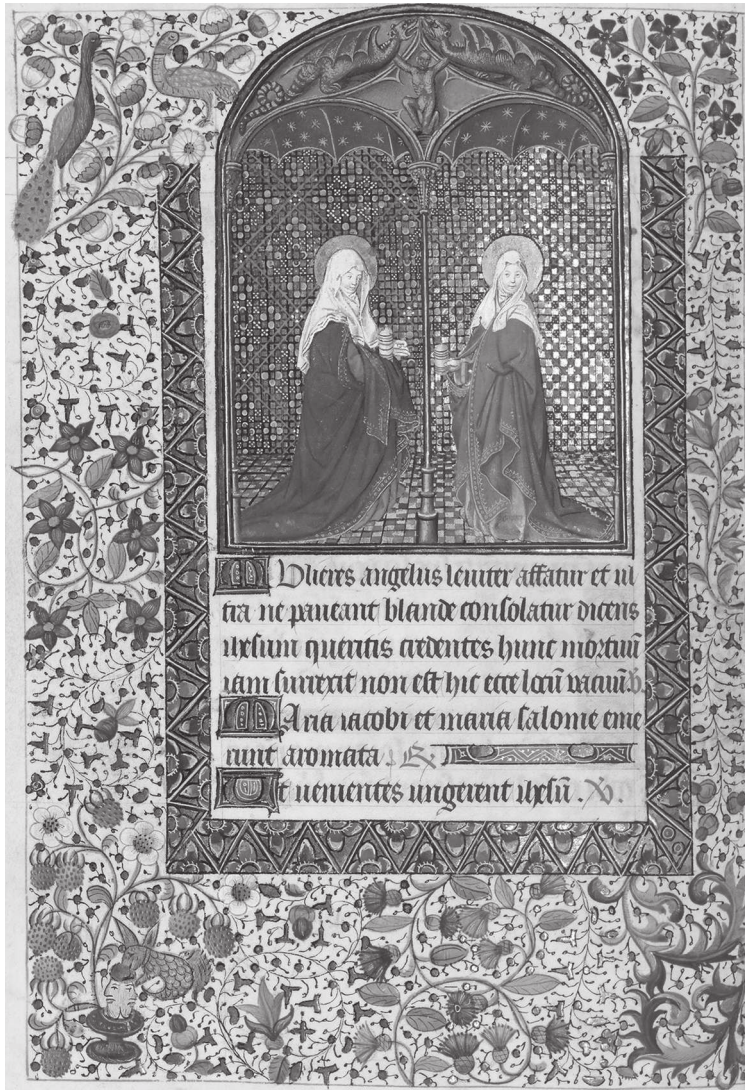 Mulieres angelus leniter affatur et in
tra ne paueant blande consolatur dicens
ihesum queritis credentes hunc mortuū
iam surrexit non est hic ecce locū vacuū. v.
Maria iacobi et maria salome eme
runt aromata. R
Ut uenientes ungerent ihesū.